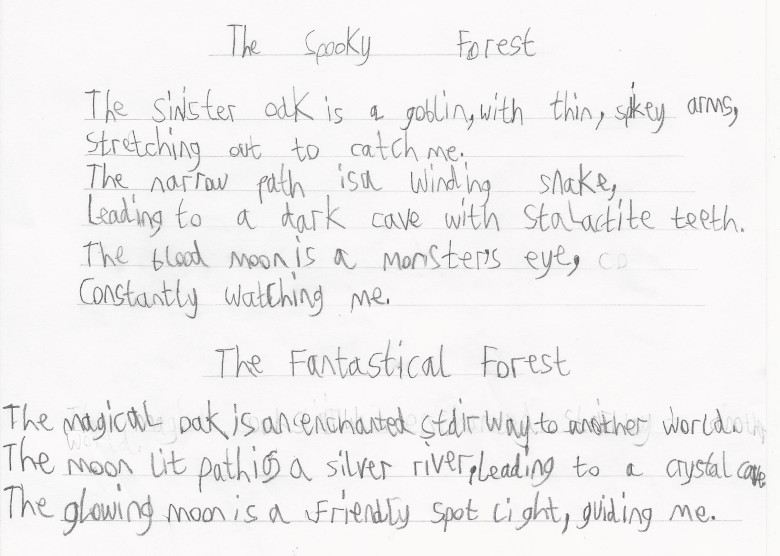 The Spooky Forest
The sinister oak is a goblin, with thin, spikey arms,
stretching out to catch me.
The narrow path is a winding snake,
Leading to a dark cave with stalactite teeth.
The blood moon is a monster's eye,
Constantly watching me.
The Fantastical Forest
The magical oak is an enchanted stairway to another world.
The moon lit path is a silver river, leading to a crystal cave.
The glowing moon is a friendly spot light, guiding me.